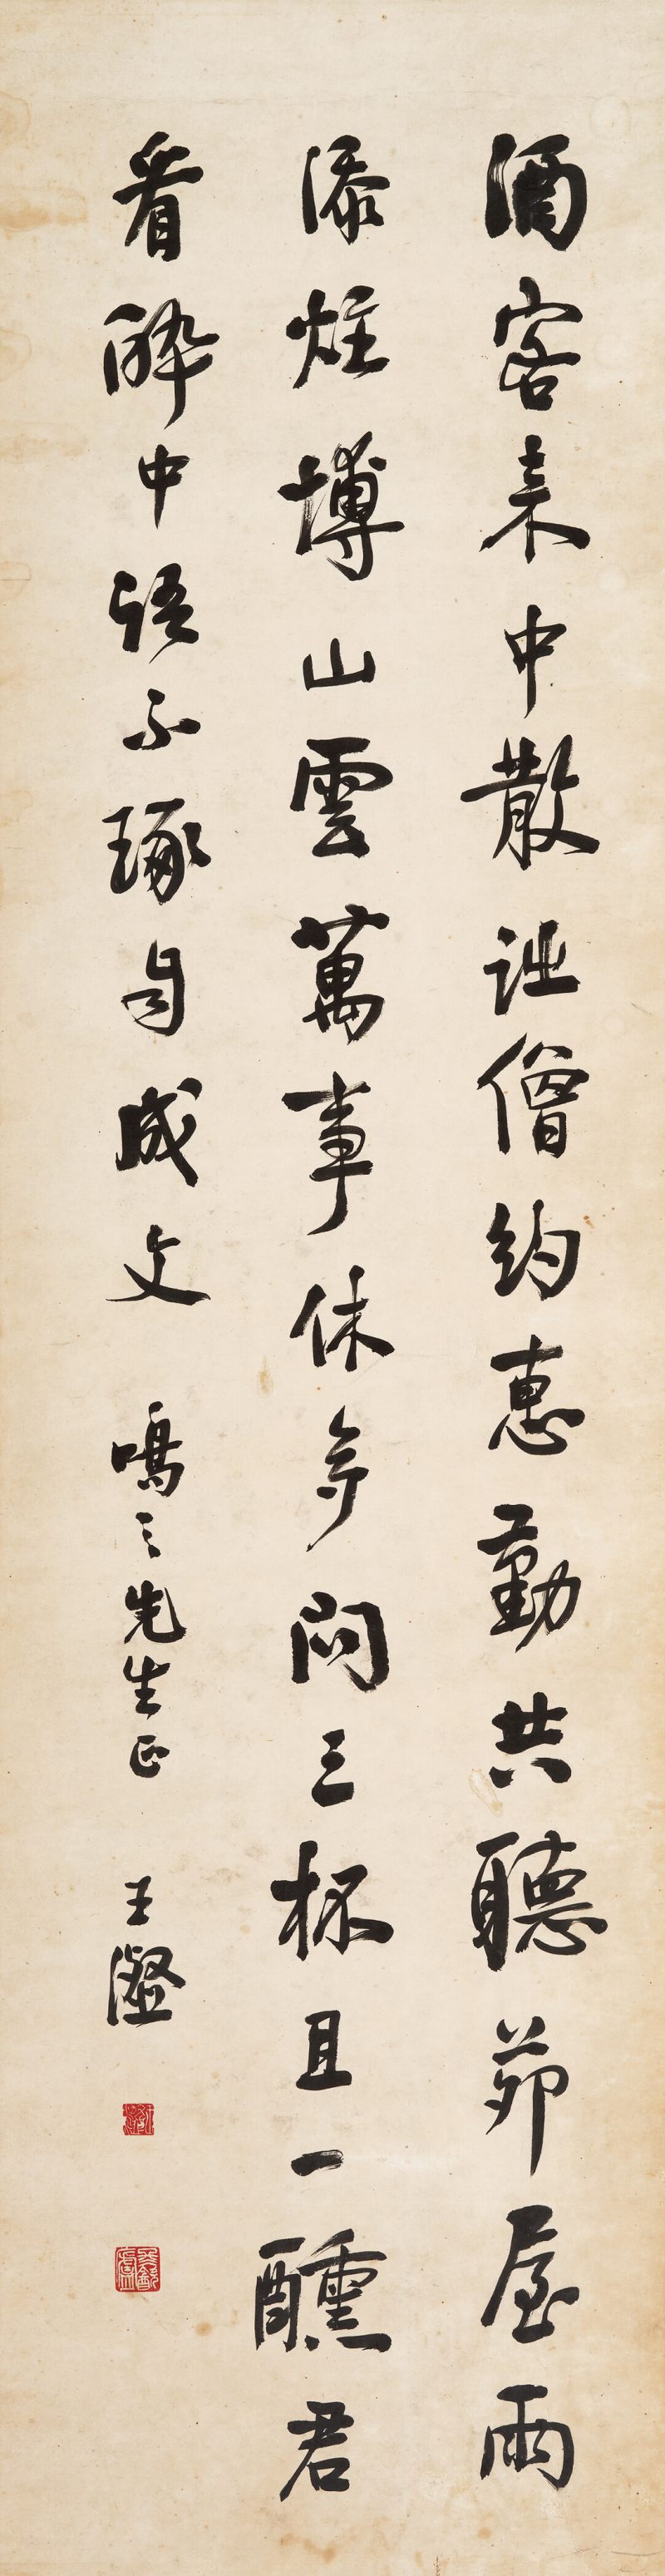 酒客來中散詎僧約惠勤共聽茆屋雨
添炷博山雲萬事休多問三杯且一醺君
看醉中語不琢自成文 鳴之先生正 王瀣